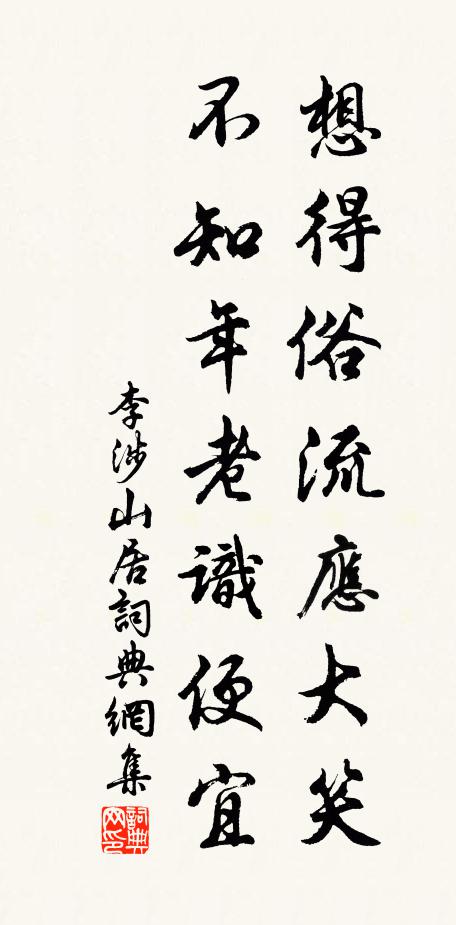 想得俗流應大笑
不知年老識便宜
李涉山居詞典網集
詞典網印